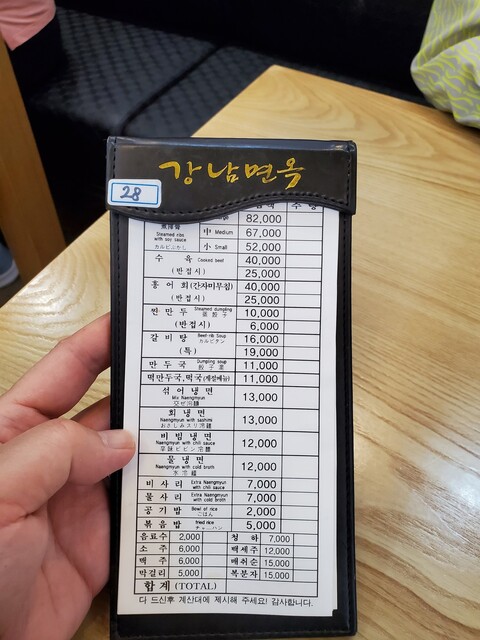 강남면옥
28
수 량
82,000
Steamed ribs with soy sauce
カルビむかし
中 Medium 67,000
小 Small 52,000
수 육 Cooked beef 40,000
(반접시) 25,000
홍어회(간자미무침) 40,000
(반접시) 25,000
찐만두 Steamed dumpling 蒸餃子 10,000
(반접시) 6,000
갈비탕 Beef-rib Soup カルビタン 16,000
(특) 19,000
만두국 Dumpling soup 11,000
떡만두국,떡국(계절메뉴) 11,000
섞어냉면 13,000
Mix Naengmyun
회냉면 13,000
Naengmyun with sashimi
おさしみスリ冷麺
비빔냉면 12,000
Naengmyun with chili sauce
辛味ビビン冷麺
물냉면 12,000
Naengmyun with cold broth
水冷麺
비사리 Extra Naengmyun with chili sauce 7,000
물사리 Extra Naengmyun with cold broth 7,000
공기밥 Bowl of rice ごはん 2,000
볶음밥 fried rice チャーハン 5,000
음료수 2,000 청하 7,000
소주 6,000 백세주 12,000
맥주 6,000 매취순 15,000
막걸리 5,000 복분자 15,000
합계 (TOTAL)
다 드신후 계산대에 제시해 주세요! 감사합니다.